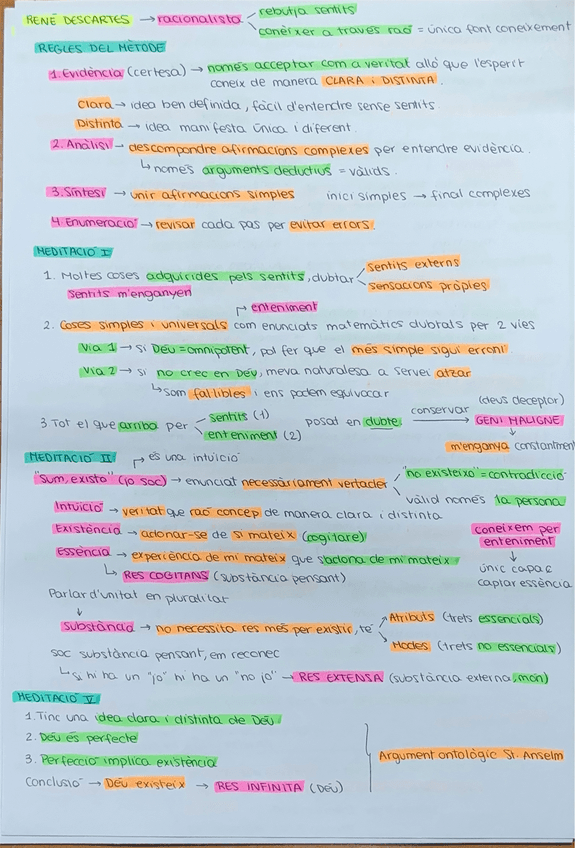 RENÉ DESCARTES → racionalista
rebutja sentits
conèixer a través raó = única font coneixement
REGLES DEL MÈTODE
1. Evidència (certesa) → només acceptar com a veritat allò que l'esperit
coneix de manera CLARA i DISTINTA.
Clara → idea ben definida, fàcil d'entendre sense sentits.
Distinta → idea manifesta única i diferent.
2. Anàlisi → descompondre afirmacions complexes per entendre evidència.
↳ només arguments deductius = vàlids.
3. Síntesi → unir afirmacions simples inici simples → final complexes
4. Enumeració → revisar cada pas per evitar errors.
MEDITACIÓ I
1. Moltes coses adquirides pels sentits, dubtar
sentits externs
sensacions pròpies
Sentits m'enganyen
enteniment
2. Coses simples i universals com enunciats matemàtics dubtals per 2 vies
Via 1 → si Déu = omnipotent, pot fer que el més simple sigui erroni.
Via 2 → si no crec en Déu, meva naturalesa a servei atzar
↳ som fal·libles i ens podem equivocar
3 Tot el que arriba per
sentits (1)
enteniment (2)
posat en dubte.
conservar →
(deus deceptor)
GENI MALIGNE
↓
m'enganya constantment
MEDITACIÓ II → és una intuïció
"Sum, existo" (jo soc) → enunciat necessàriament vertader
"no existeixo" = contradicció
vàlid només 1a persona
Intuïció → veritat que raó concep de manera clara i distinta
Existència → adonar-se de si mateix (cogitare)
Essència → experiència de mi mateix que s'adona de mi mateix
↳ RES COGITANS (substància pensant)
coneixem per
enteniment
↓
únic capaç
captar essència
Parlar d'unitat en pluralitat
↓
substància → no necessita res més per existir, té
Atributs (trets essencials)
Modes (trets no essencials)
soc substància pensant, em reconec
↳ si hi ha un "jo" hi ha un "no jo" → RES EXTENSA (substància externa, món)
MEDITACIÓ V
1. Tinc una idea clara i distinta de Déu
2. Déu és perfecte
3. Perfecció implica existència
Conclusió → Déu existeix → RES INFINITA (DÉU)
Argument ontològic St. Anselm